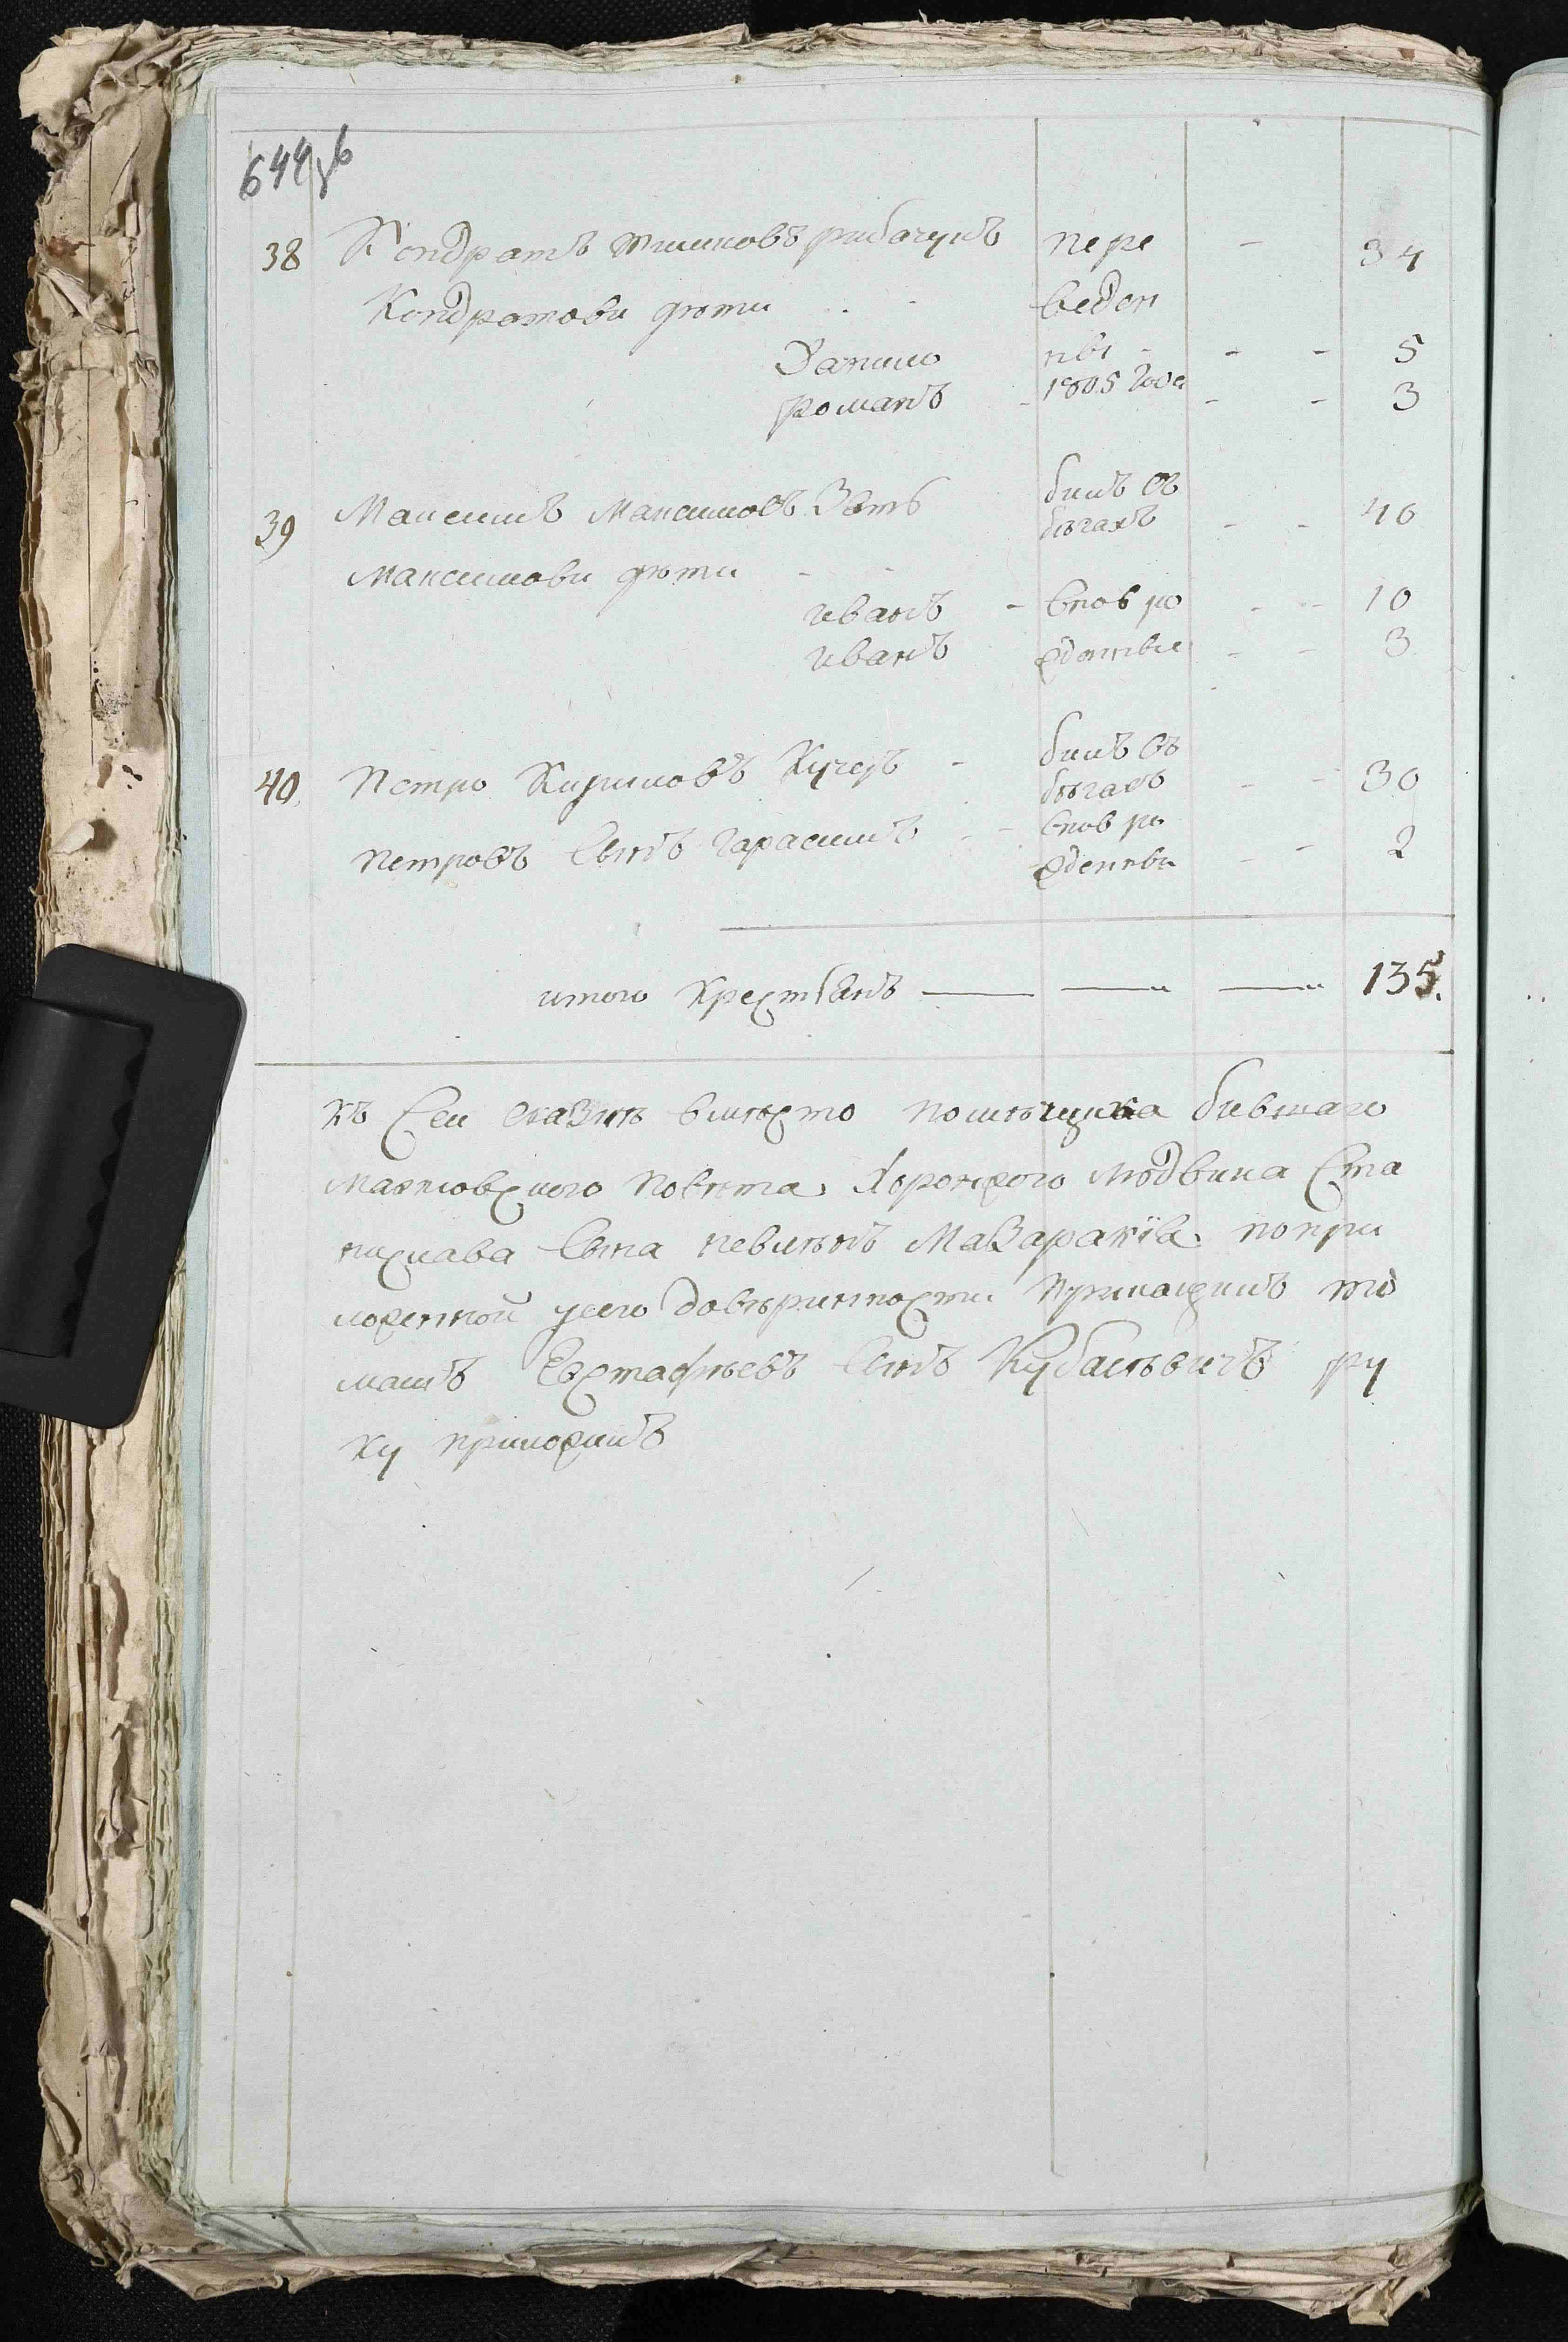 644 об
38 Кондратъ тимковъ рибачукъ пере - 34
Кондратови дѣти веден
Данило ны - - - 5
романъ - 1805 года - - 3
39 Максимъ Максимовъ Зать билъ въ бѣгахъ - - 40
Максимови дѣти - -
иванъ - внов ро - - 10
иванъ жденные - - 3
40 Петро Кириловъ Кучеръ - билъ въ бѣгахъ - - 30
Петровъ сынъ гарасимъ - - внов ро жденны - - 2
итого крестьянъ — — — 135.
къ сей сказкѣ вмѣсто помѣщика бившаго
Махновского повѣта хоронжого людвика Ста
нислава сына Мазаракія попри
ложенной унего довѣринности прикащикъ то
машъ Евстафѣевъ сынъ Кубасѣвичъ ру
ку приложилъ